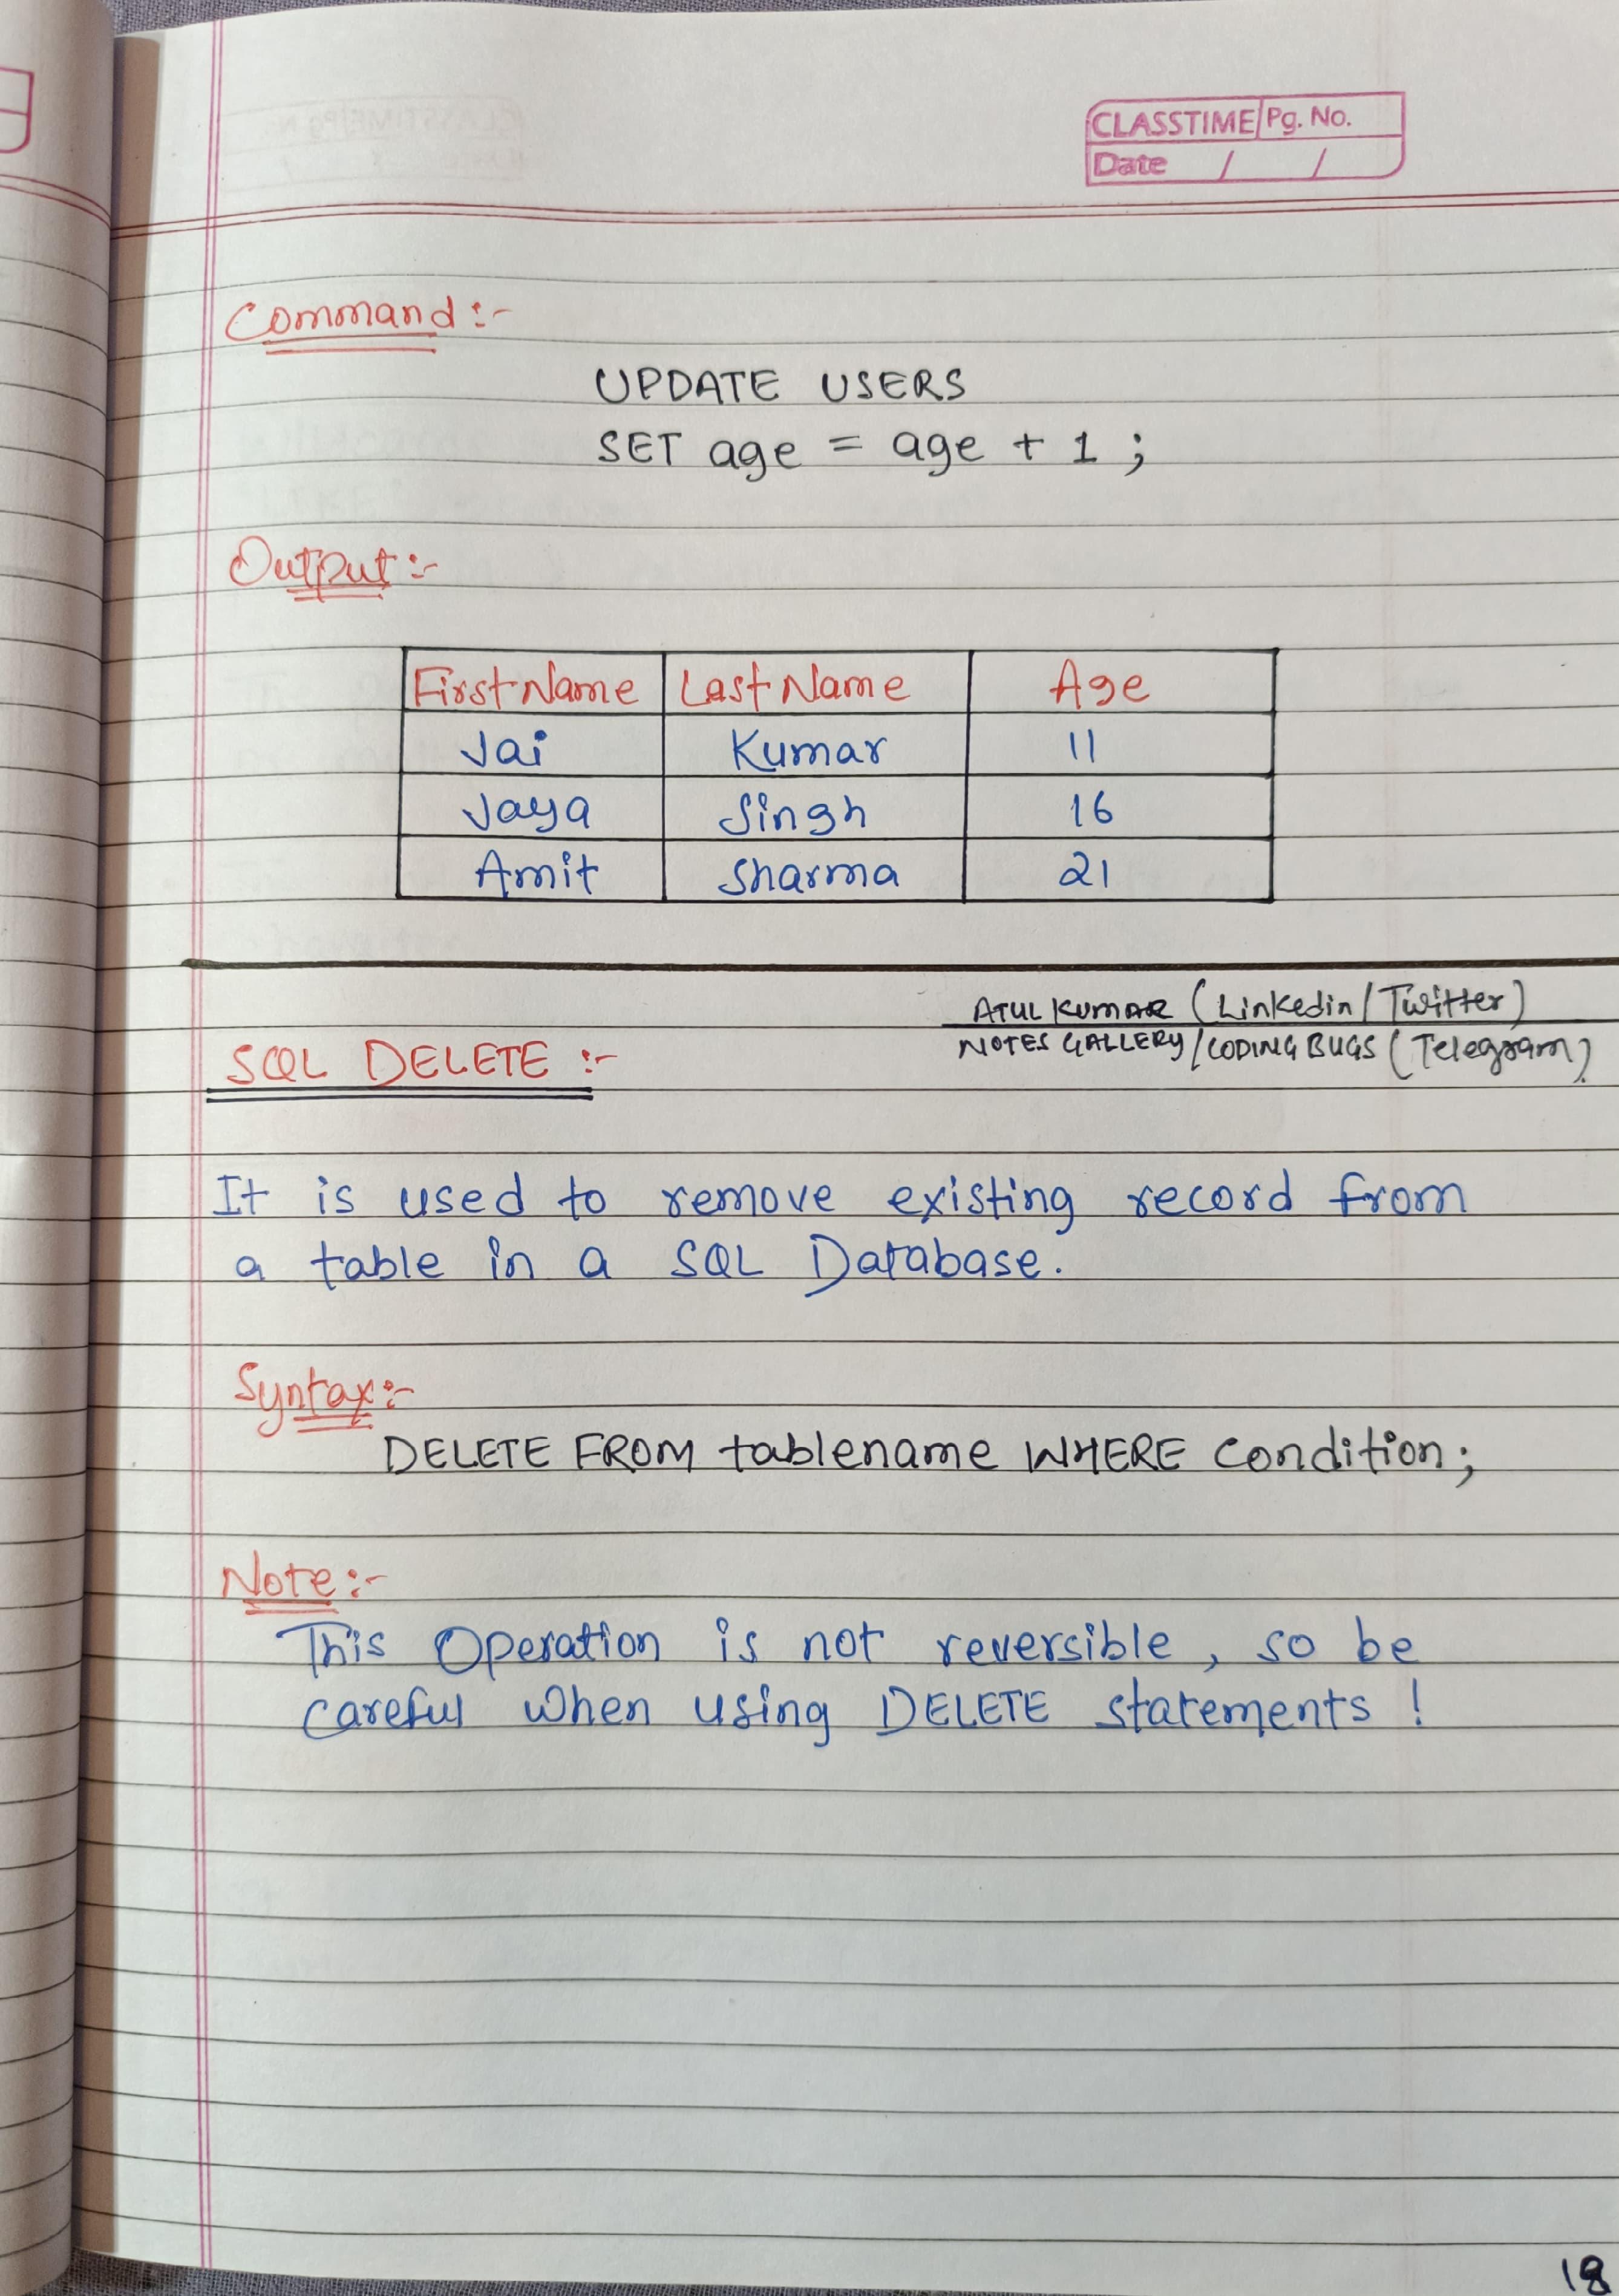 CLASSTIME Pg. No.
Date / /
Command:-
UPDATE USERS
SET age = age + 1 ;
Output:-
FirstName LastName Age
Jai Kumar 11
Jaya Singh 16
Amit Sharma 21
ATUL KUMAR (Linkedin/Twitter)
NOTES GALLERY/CODING BUGS (Telegram)
SQL DELETE :-
It is used to remove existing record from
a table in a SQL Database.
Syntax:-
DELETE FROM tablename WHERE Condition;
Note:-
This Operation is not reversible, so be
careful when using DELETE statements !
18